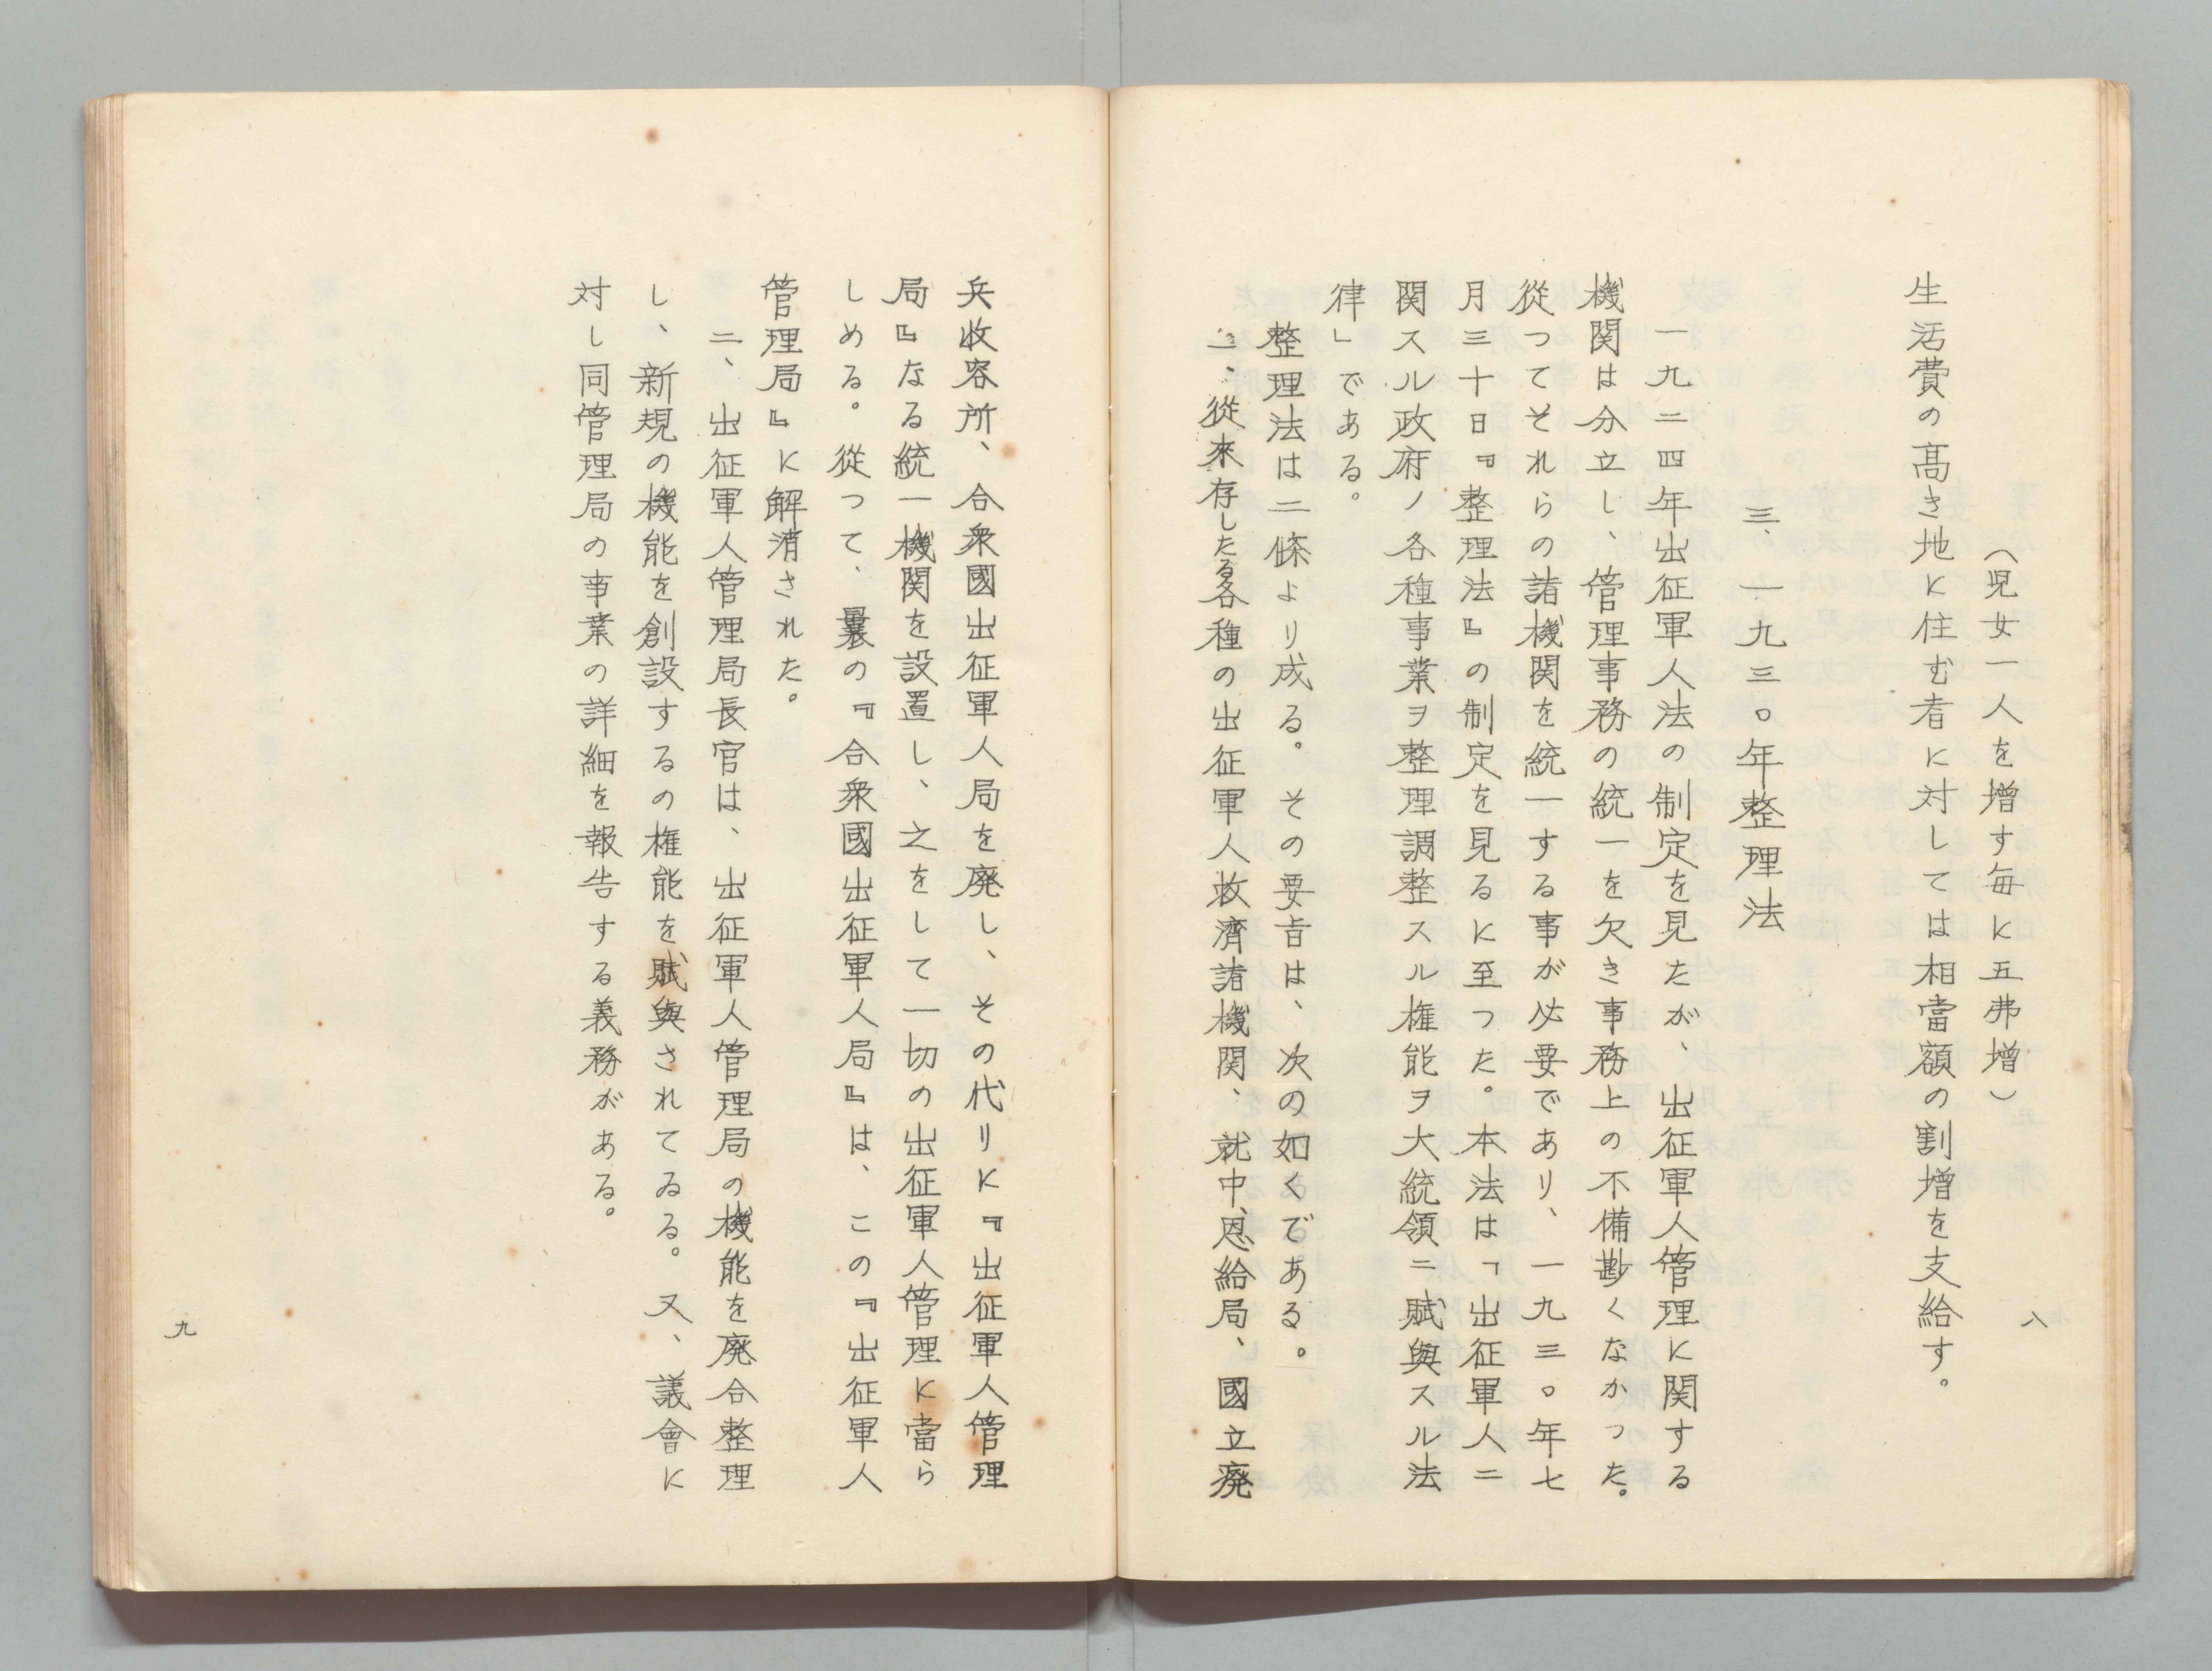 （児女一人を増す毎に五弗増）
生活費の高き地に住む者に対しては相當額の割増を支給す。
三、一九三〇年整理法
一九二四年出征軍人法の制定を見たが、出征軍人管理に関する
機関は分立し、管理事務の統一を欠き事務上の不備尠くなかった。
従つてそれらの諸機関を統一する事が必要であり、一九三〇年七
月三十日『整理法』の制定を見るに至つた。本法は「出征軍人ニ
関スル政府ノ各種事業ヲ整理調整スル権能ヲ大統領ニ賦與スル法
律」である。
整理法は二條より成る。その要旨は、次の如くである。
一、從來存したる各種の出征軍人救濟諸機関、就中、恩給局、國立廃
八
兵收容所、合衆國出征軍人局を廃し、その代リに『出征軍人管理
局』なる統一機関を設置し、之をして一切の出征軍人管理に當ら
しめる。從つて、曩の『合衆國出征軍人局』は、この『出征軍人
管理局』に解消された。
二、出征軍人管理局長官は、出征軍人管理局の機能を廃合整理
し、新規の機能を創設するの権能を賦與されてゐる。又、議會に
対し同管理局の事業の詳細を報告する義務がある。
九